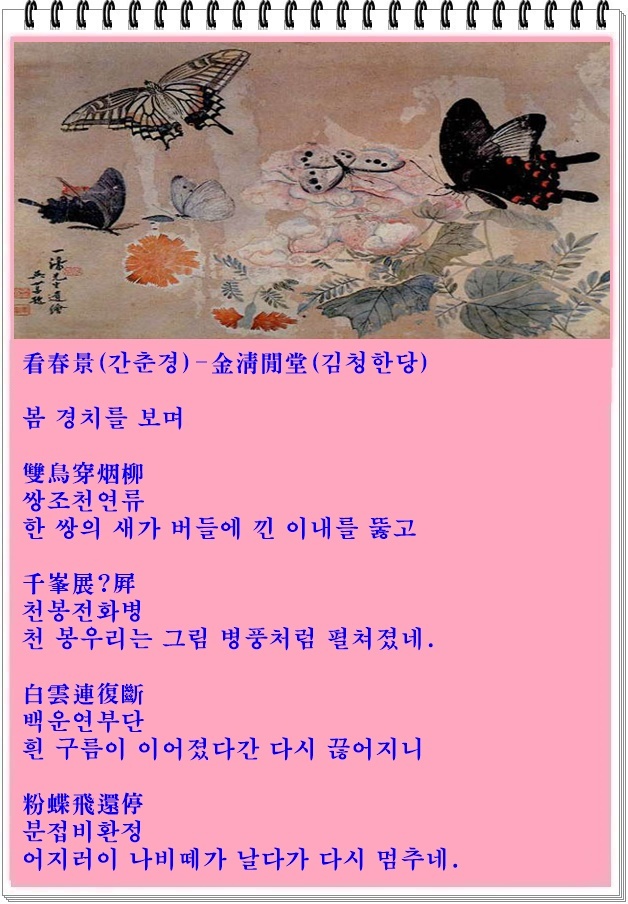 一濠先生道繪
看春景(간춘경)-金淸閒堂(김청한당)
봄 경치를 보며
雙鳥穿烟柳
쌍조천연류
한 쌍의 새가 버들에 낀 이내를 뚫고
千峯展?屛
천봉전화병
천 봉우리는 그림 병풍처럼 펼쳐졌네.
白雲連復斷
백운연부단
흰 구름이 이어졌다간 다시 끊어지니
粉蝶飛還停
분접비환정
어지러이 나비떼가 날다가 다시 멈추네.